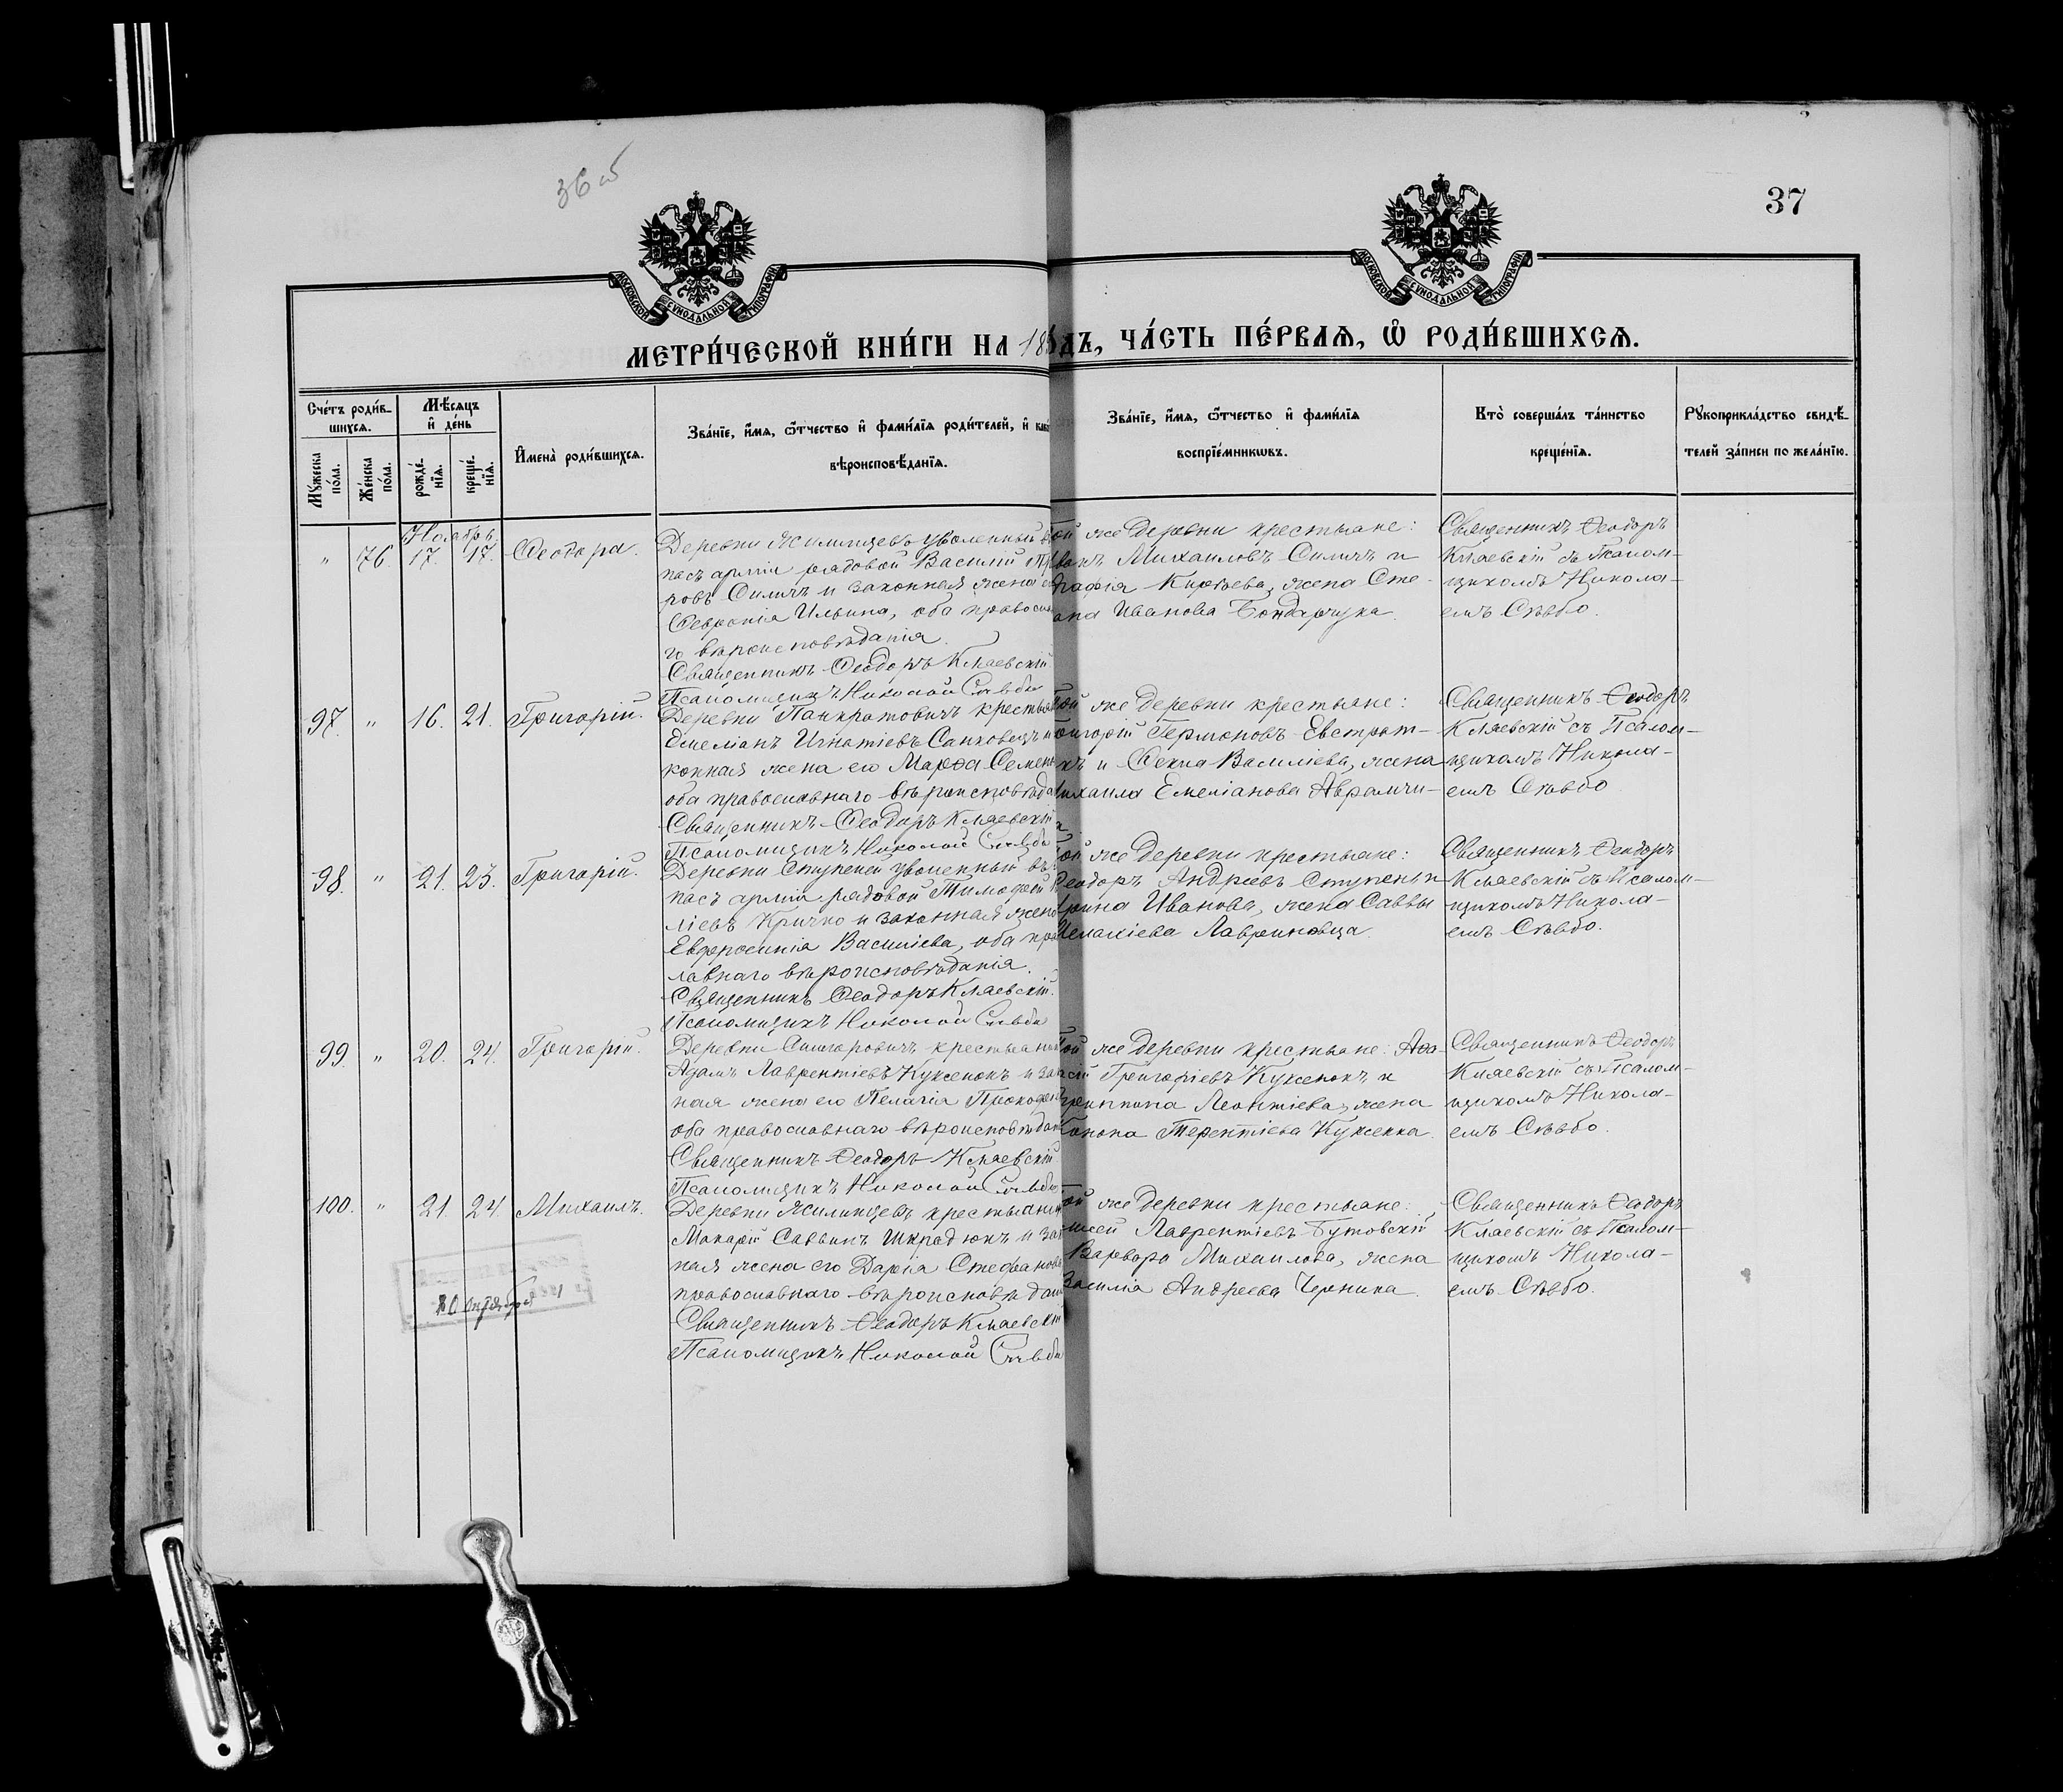 36 об
37
МОСКОВСКОЙ СѴНОДАЛЬНОЙ ТИПОГРАФІИ
МОСКОВСКОЙ СѴНОДАЛЬНОЙ ТИПОГРАФІИ
МЕТРИ́ЧЕСКОЙ КНИ́ГИ НА 18
ДЪ, ЧА́СТЬ ПЕ́РВАЯ, Ѡ҆ РОДИ́ВШИХСЯ.
Сче́тъ роди́в-
шихся.
Мꙋ́жеска по́ла.
Же́нска по́ла.
Мѣ́сяцъ и҆ де́нь
рожде́-
нїя.
креще́-
нїя.
И҆мена̀ роди́вшихся.
Зва́нїе, и҆́мя, ѻ҆́тчество и҆ фами́лїя роди́телей, и҆
вѣроисповѣ́данїя.
Зва́нїе, и҆́мя, ѻ҆́тчество и҆ фами́лїя
воспрїе́мникѡвъ.
Кто̀ соверша́лъ та́инство
креще́нїя.
Рꙋкоприкла́дство свидѣ́-
телей за́писи по жела́нїю.
Ноябрь.
" 76. 17. 17. Ѳеодора.
Деревни Жилинцевъ уволенный въ
пасъ арміи рядовой Василій
ровъ Силичъ и законная жена
Февронія Ильина, оба правосла
го вѣроисповѣданія.
Священникъ Ѳеодоръ Кляевскій
Псаломщикъ Николай Сѣвбо
ой же деревни крестьяне:
ванъ Михаиловъ Силичъ и
графія Кирѣева, жена Сте-
ана Иванова Бондарчука.
Священникъ Ѳеодоръ
Кляевскій съ Псалом-
щикомъ Никола-
емъ Сѣвбо.
97. " 16. 21. Григорій.
Деревни Панкратовичъ крестья
Емеліанъ Игнатіевъ Санковецъ и
конная жена его Марѳа Семен
оба православнаго вѣроисповѣда
Священникъ Ѳеодоръ Кляевскій
Псаломщикъ Николай Сѣвбо
ой же деревни крестьяне:
ригорій Гермоновъ Евстрат-
къ и Ѳекла Василіева, жена
ихаила Емеліанова Аврамчи-
Священникъ Ѳеодоръ
Кляевскій съ Псалом-
щикомъ Никола-
емъ Сѣвбо
98. " 21. 23. Григорій.
Деревни Ступеней уволенный въ
пасъ арміи рядовой Тимоѳей
ліевъ Кричко и законная жена
Евфросинія Василіева, оба пра
лавнаго вѣроисповѣданія.
Священникъ Ѳеодоръ Кляевскій.
Псаломщикъ Николай Сѣвбо
ой же деревни крестьяне:
Ѳеодоръ Андреевъ Ступень и
рина Иванова, жена Саввы
Лавриновца.
Священникъ Ѳеодоръ
Кляевскій съ Псалом-
щикомъ Никола-
емъ Сѣвбо.
99. " 20. 24. Григорій.
Деревни крестьянин
Адамъ Лаврентіевъ Куксенокъ и за
ная жена его Пелагія Прокофі
оба православнаго вѣроисповѣдан
Священникъ Ѳеодоръ Кляевскій
Псаломщикъ Николай Сѣвбо
ой же деревни крестьяне:
сій Григоріевъ Куксенокъ и
гриппина Леонтіева, жена
Терентіева Куксенка.
Священникъ Ѳеодоръ
Кляевскій съ Псалом-
щикомъ Никола-
емъ Сѣвбо.
100. " 21. 24. Михаилъ.
Деревни Жилинцевъ крестьянин
Макарій Саввинъ Шкрадюкъ и за
ная жена его Дарія Стефанова
православнаго вѣроисповѣдан
Священникъ Ѳеодоръ Кляевскій
Псаломщикъ Николай Сѣвбо
ой же деревни крестьяне:
Лаврентіевъ Бутовскій
Варвара Михаилова, жена
Василія Андреева Черника.
Священникъ Ѳеодоръ
Кляевскій съ Псалом-
щикомъ Никола-
емъ Сѣвбо.